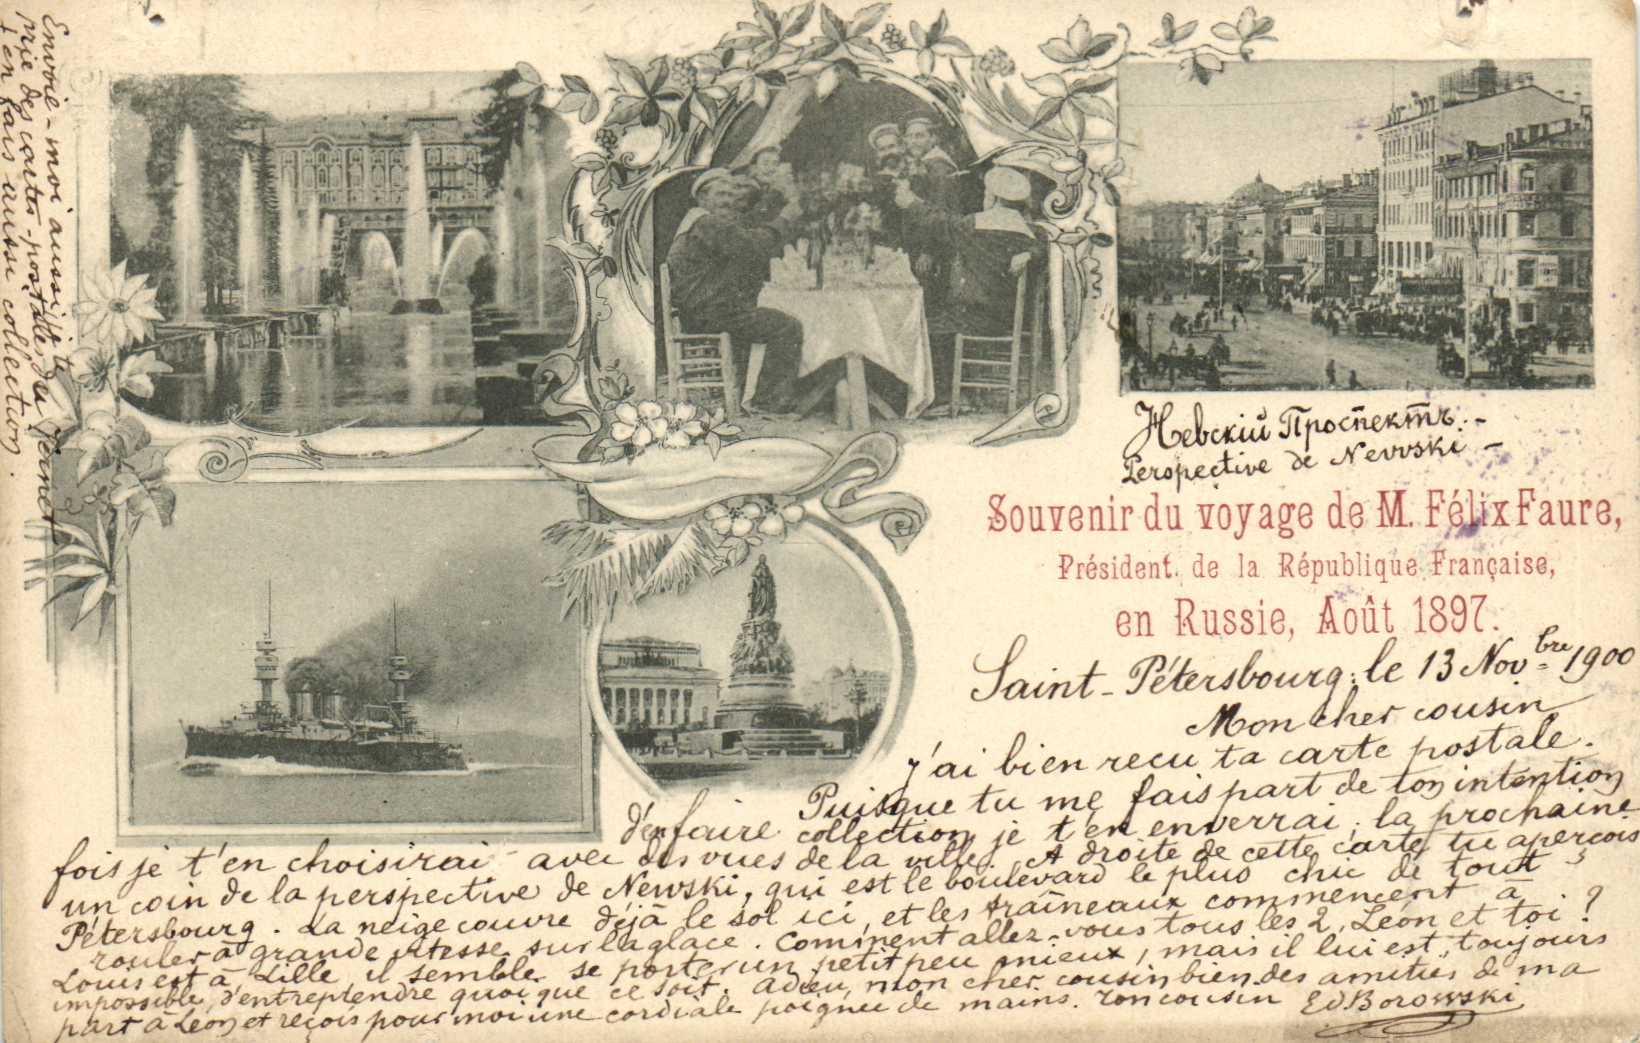 Envoie-moi aussi je te
prie des cartes-postales de Vernet
j'en fais aussi collection.
Невскій Проспектъ. -
Perspective de Nevvski -
Souvenir du voyage de M. Félix Faure,
Président de la République Française,
en Russie, Août 1897.
Saint-Pétersbourg. le 13 Novbre 1900
Mon cher cousin
J'ai bien recu ta carte postale.
Puisque tu me fais part de ton intention
d'en faire collection je t'en enverrai; la prochaine
fois je t'en choisirai avec des vues de la ville. A droite de cette carte tu aperçois
un coin de la perspective de Newski, qui est le boulevard le plus chic de tout
Pétersbourg. La neige couvre déjà le sol ici, et les traîneaux commencent à
rouler à grande vitesse sur la glace. Comment allez-vous tous les 2, Léon et toi?
Louis est à Lille il semble se porter un petit peu mieux, mais il lui est toujours
impossible d'entreptendre quoi que ce soit. Adieu, mon cher cousin bien des amitiés de ma
part à Léon et reçois pour moi une cordiale poignée de mains. Ton cousin Ed Borowski